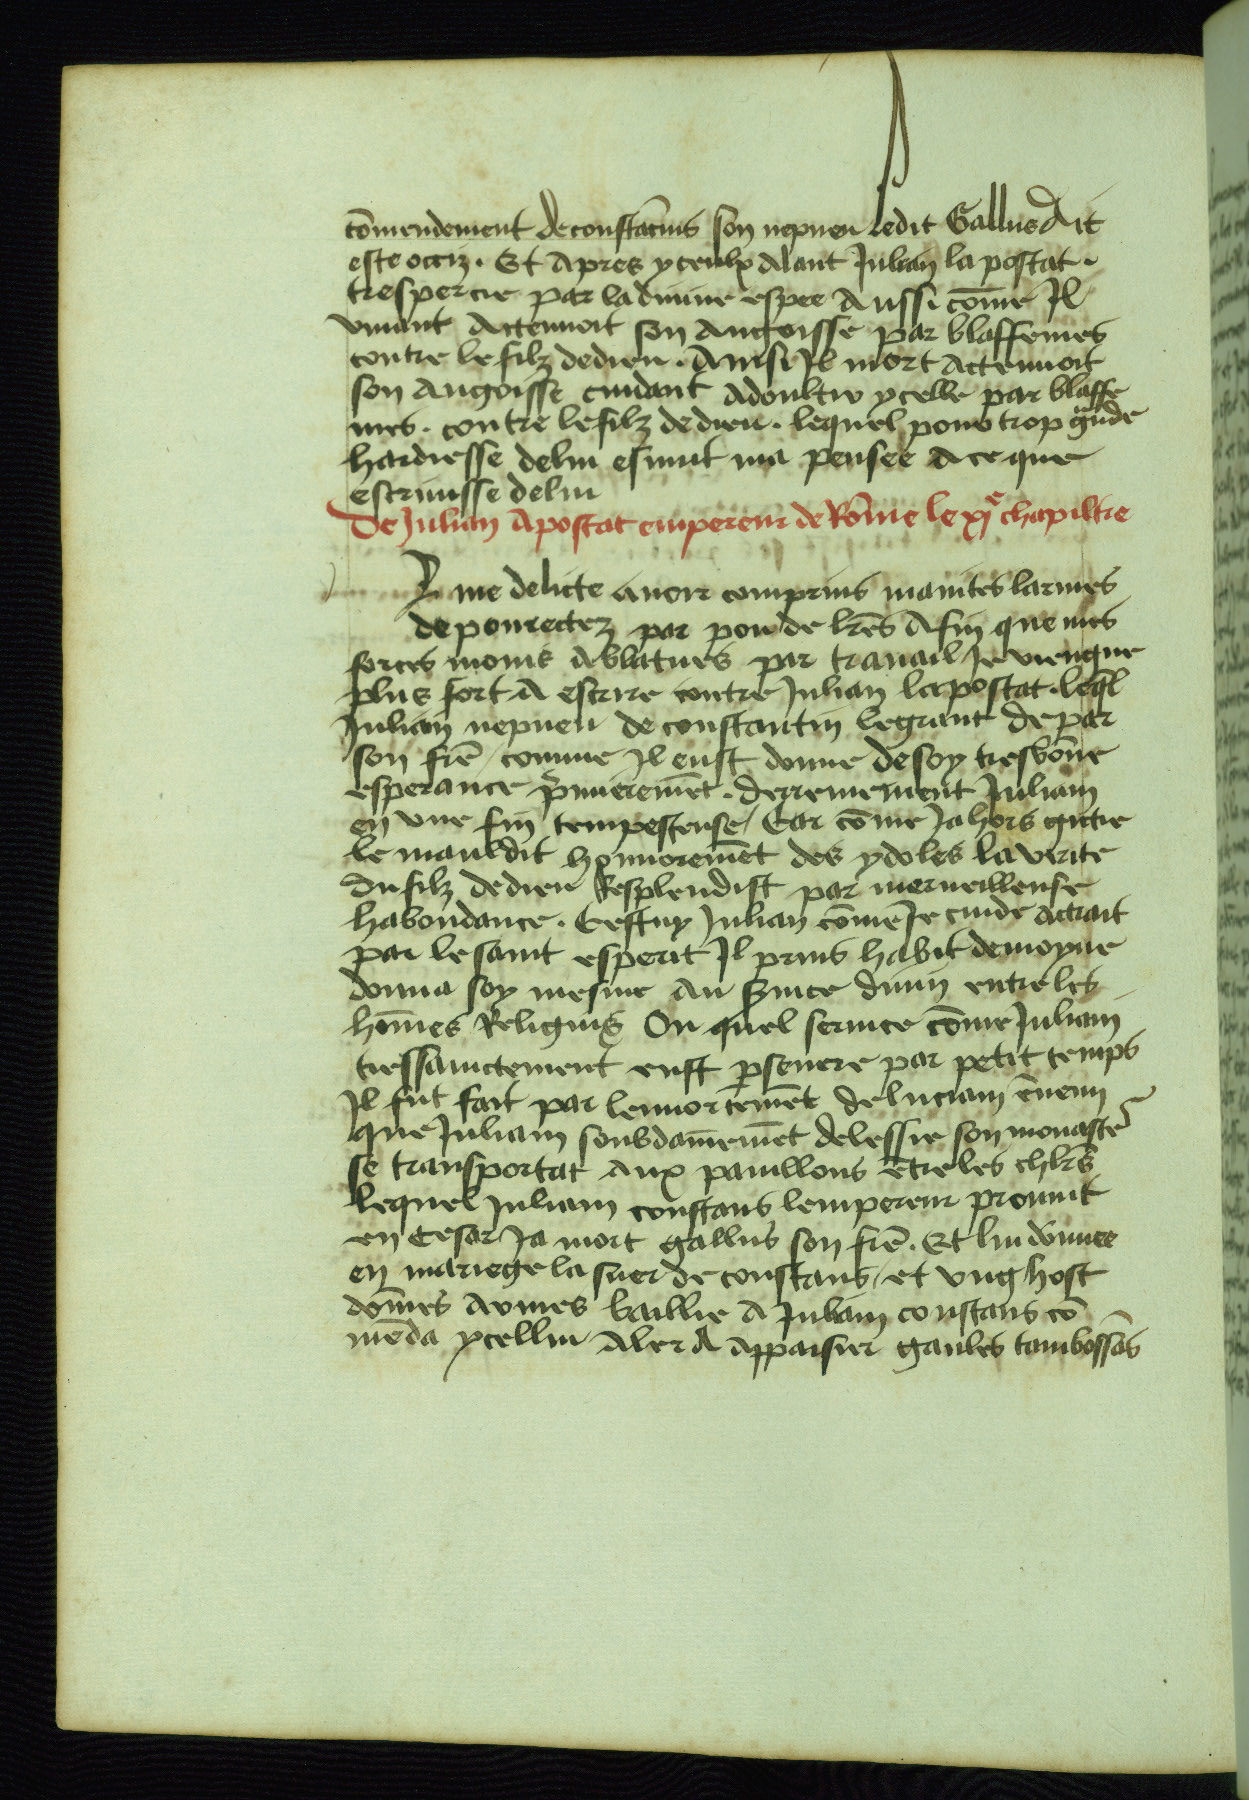 cōmendement de constācius son nepueu ledit Gallus dit
este occiz. Et apres yceulx alant Julian la postat.
trespercie par la diuine espee Aussi cōme Il
viuant Attenuoit son Angoisse par blaffemes
contre le filz de dieu. Ainsi Il mort Attenuoit
son Angoisse cuidant Adoulcir ycelle par blaffe
mes. contre le filz de dieu. lequel pouo trop grāde
hardiesse de lui esmut ma pensee A ce que
escriuisse de lui
De Julian Apostat empereur de Rōme le xjᵉ chapiltre
L me delicte auoir comprins maintes larmes
de pourectez par pou de lrēs Afin que mes
forces moins ablatues par trauail Je viengne
plus fort A escrire contre Julian lapostat. leql̄
Julian nepueu de constantin le grant de par
son frē / comme Il eust donne de soy tresbōne
esperance p̄mieremēt. derrenierement Julian
en vne fin tempesteuse / Car cōme Ja hors gictie
le mauldit honnoremēt des ydoles la verite
du filz de dieu Resplendist par merueilleuse
habondance. Cestuy Julian cōme Je cuide actrait
par le saint esperit Il prins habit de moyne
donna soy mesme Au s̄uice diuin entre les
hōmes Religius Ou quel seruice cōme Julian
tressainctement eust p̄seuere par petit temps
Il fut fait par lennortemēt de lucian ēnemi
que Julian soubdainemēt delessie son monastēr
se transportat aux pauillons ētre les chlr̄s
lequel Julian constans lempereur promut
en Cesar Ja mort gallus son frē. Et lui dōnnee
en mariege la suer de constans / et vng host
dōmes armes baillie A Julian constans cō
mēda ycellui Aler A Appaisier gaules